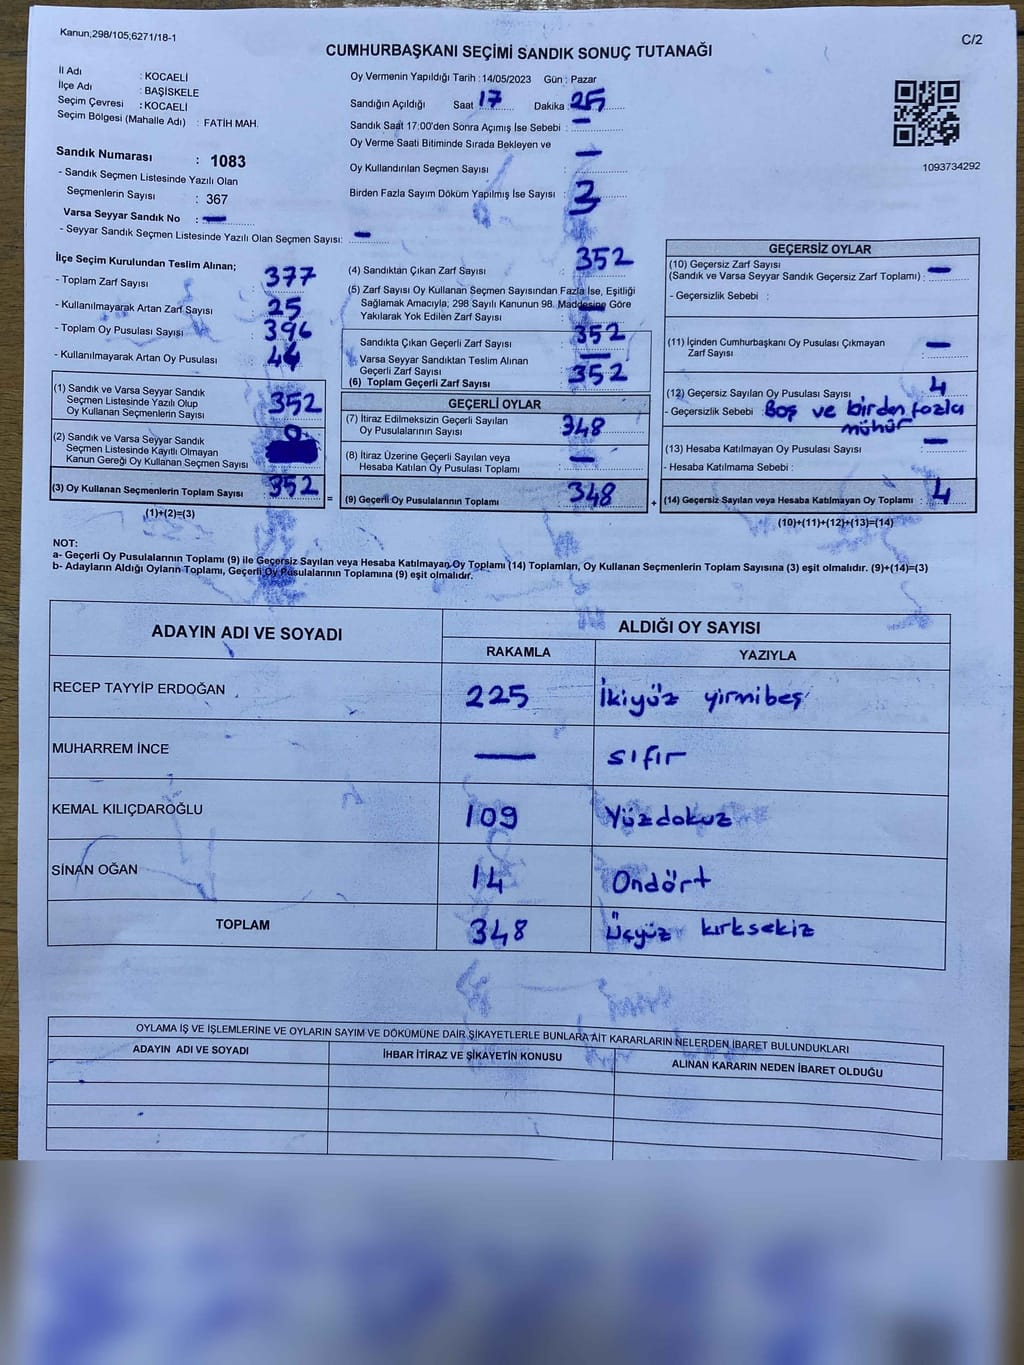 Kanun;298/105;6271/18-1
C/2
CUMHURBAŞKANI SEÇİMİ SANDIK SONUÇ TUTANAĞI
İl Adı : KOCAELİ
İlçe Adı : BAŞİSKELE
Seçim Çevresi : KOCAELİ
Seçim Bölgesi (Mahalle Adı) : FATİH MAH.
Sandık Numarası : 1083
- Sandık Seçmen Listesinde Yazılı Olan
Seçmenlerin Sayısı : 367
Varsa Seyyar Sandık No : —
- Seyyar Sandık Seçmen Listesinde Yazılı Olan Seçmen Sayısı: —
Oy Vermenin Yapıldığı Tarih : 14/05/2023 Gün : Pazar
Sandığın Açıldığı Saat 17 Dakika : 25
Sandık Saat 17:00'den Sonra Açımış İse Sebebi : —
Oy Verme Saati Bitiminde Sırada Bekleyen ve
Oy Kullandırılan Seçmen Sayısı : —
Birden Fazla Sayım Döküm Yapılmış İse Sayısı : 3
1093734292
İlçe Seçim Kurulundan Teslim Alınan;
- Toplam Zarf Sayısı : 377
- Kullanılmayarak Artan Zarf Sayısı : 25
- Toplam Oy Pusulası Sayısı : 396
- Kullanılmayarak Artan Oy Pusulası : 44
(1) Sandık ve Varsa Seyyar Sandık
Seçmen Listesinde Yazılı Olup
Oy Kullanan Seçmenlerin Sayısı : 352
(2) Sandık ve Varsa Seyyar Sandık
Seçmen Listesinde Kayıtlı Olmayan
Kanun Gereği Oy Kullanan Seçmen Sayısı : 0
(3) Oy Kullanan Seçmenlerin Toplam Sayısı : 352
(1)+(2)=(3)
=
(4) Sandıktan Çıkan Zarf Sayısı : 352
(5) Zarf Sayısı Oy Kullanan Seçmen Sayısından Fazla İse, Eşitliği
Sağlamak Amacıyla; 298 Sayılı Kanunun 98. Maddesine Göre
Yakılarak Yok Edilen Zarf Sayısı : —
Sandıkta Çıkan Geçerli Zarf Sayısı : 352
Varsa Seyyar Sandıktan Teslim Alınan
Geçerli Zarf Sayısı : —
(6) Toplam Geçerli Zarf Sayısı : 352
GEÇERLİ OYLAR
(7) İtiraz Edilmeksizin Geçerli Sayılan
Oy Pusulalarının Sayısı : 348
(8) İtiraz Üzerine Geçerli Sayılan veya
Hesaba Katılan Oy Pusulası Toplamı : —
(9) Geçerli Oy Pusulalarının Toplamı : 348
+
GEÇERSİZ OYLAR
(10) Geçersiz Zarf Sayısı
(Sandık ve Varsa Seyyar Sandık Geçersiz Zarf Toplamı) : —
- Geçersizlik Sebebi :
(11) İçinden Cumhurbaşkanı Oy Pusulası Çıkmayan
Zarf Sayısı : —
(12) Geçersiz Sayılan Oy Pusulası Sayısı : 4
- Geçersizlik Sebebi : Boş ve birden fazla
mühür
(13) Hesaba Katılmayan Oy Pusulası Sayısı : —
- Hesaba Katılmama Sebebi :
(14) Geçersiz Sayılan veya Hesaba Katılmayan Oy Toplamı : 4
(10)+(11)+(12)+(13)=(14)
NOT:
a- Geçerli Oy Pusulalarının Toplamı (9) ile Geçersiz Sayılan veya Hesaba Katılmayan Oy Toplamı (14) Toplamları, Oy Kullanan Seçmenlerin Toplam Sayısına (3) eşit olmalıdır. (9)+(14)=(3)
b- Adayların Aldığı Oyların Toplamı, Geçerli Oy Pusulalarının Toplamına (9) eşit olmalıdır.
ADAYIN ADI VE SOYADI ALDIĞI OY SAYISI
RAKAMLA YAZIYLA
RECEP TAYYİP ERDOĞAN 225 İkiyüz yirmibeş
MUHARREM İNCE — sıfır
KEMAL KILIÇDAROĞLU 109 Yüzdokuz
SİNAN OĞAN 14 Ondört
TOPLAM 348 Üçyüz kırksekiz
OYLAMA İŞ VE İŞLEMLERİNE VE OYLARIN SAYIM VE DÖKÜMÜNE DAİR ŞİKAYETLERLE BUNLARA AİT KARARLARIN NELERDEN İBARET BULUNDUKLARI
ADAYIN ADI VE SOYADI İHBAR İTİRAZ VE ŞİKAYETİN KONUSU ALINAN KARARIN NEDEN İBARET OLDUĞU